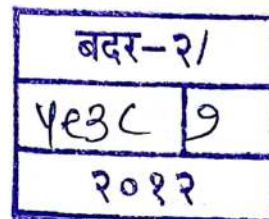 बदर-२/
५९३८
२०१२